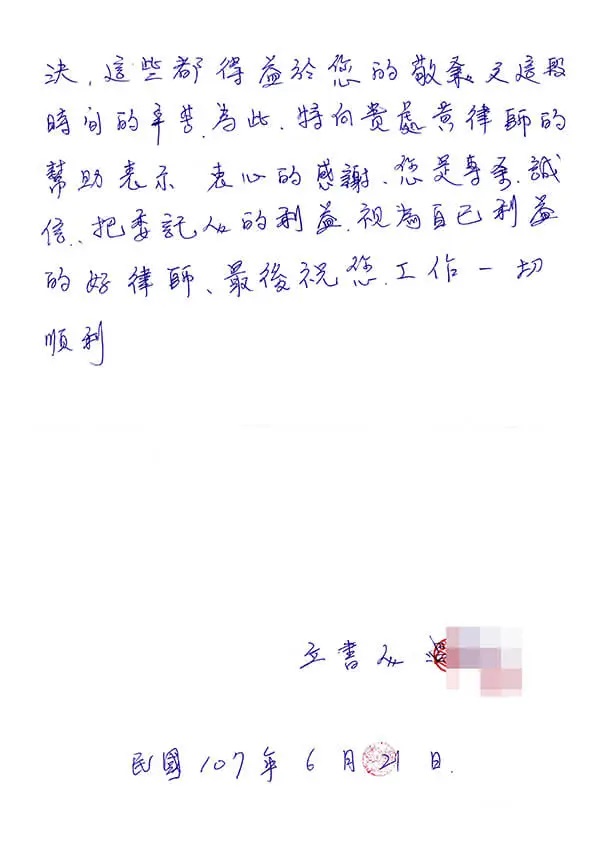 決，這些都得益於您的敬業及這段
時間的辛苦.為此.特向貴處黃律師的
幫助表示 衷心的感謝、您是專業.誠
信、把委託人的利益.視為自己利益
的好律師、最後祝您.工作一切
順利
立書人
民國 107年 6 月 21 日.